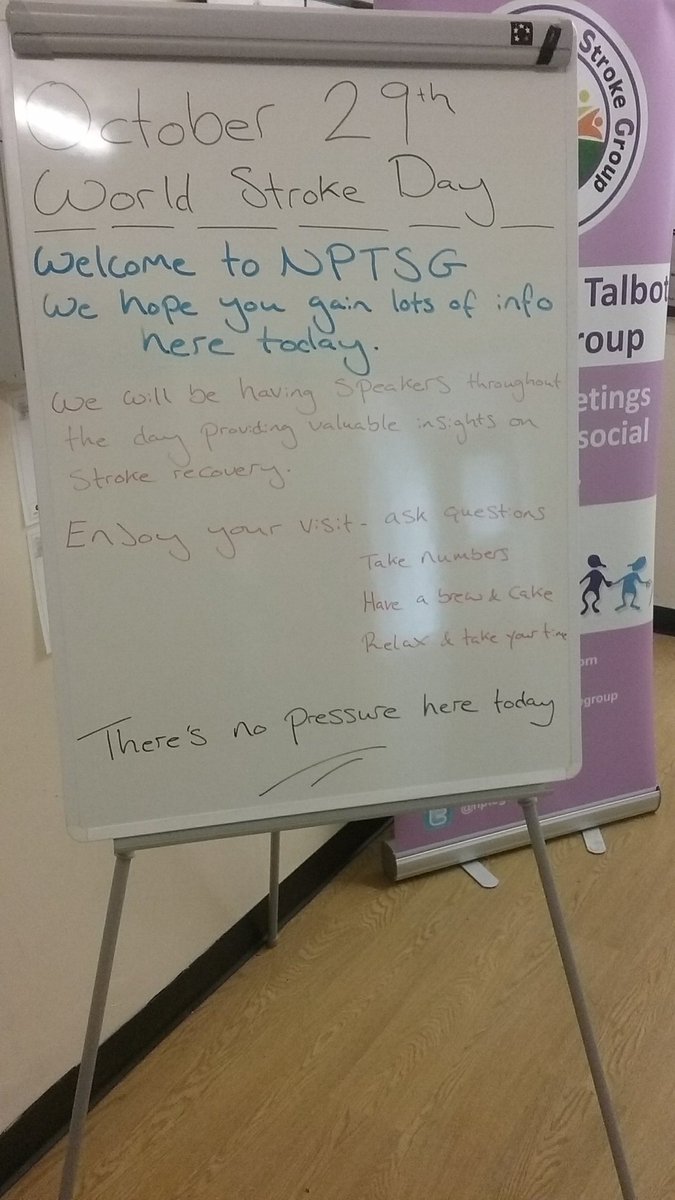 October 29th
World Stroke Day
Welcome to NPTSG
We hope you gain lots of info
here today.
We will be having speakers throughout
the day providing valuable insights on
Stroke recovery.
Enjoy your visit - ask questions
Take numbers
Have a brew & cake
Relax & take your time
There's no pressure here today
Stroke Group
Talbot
roup
etings
social
group